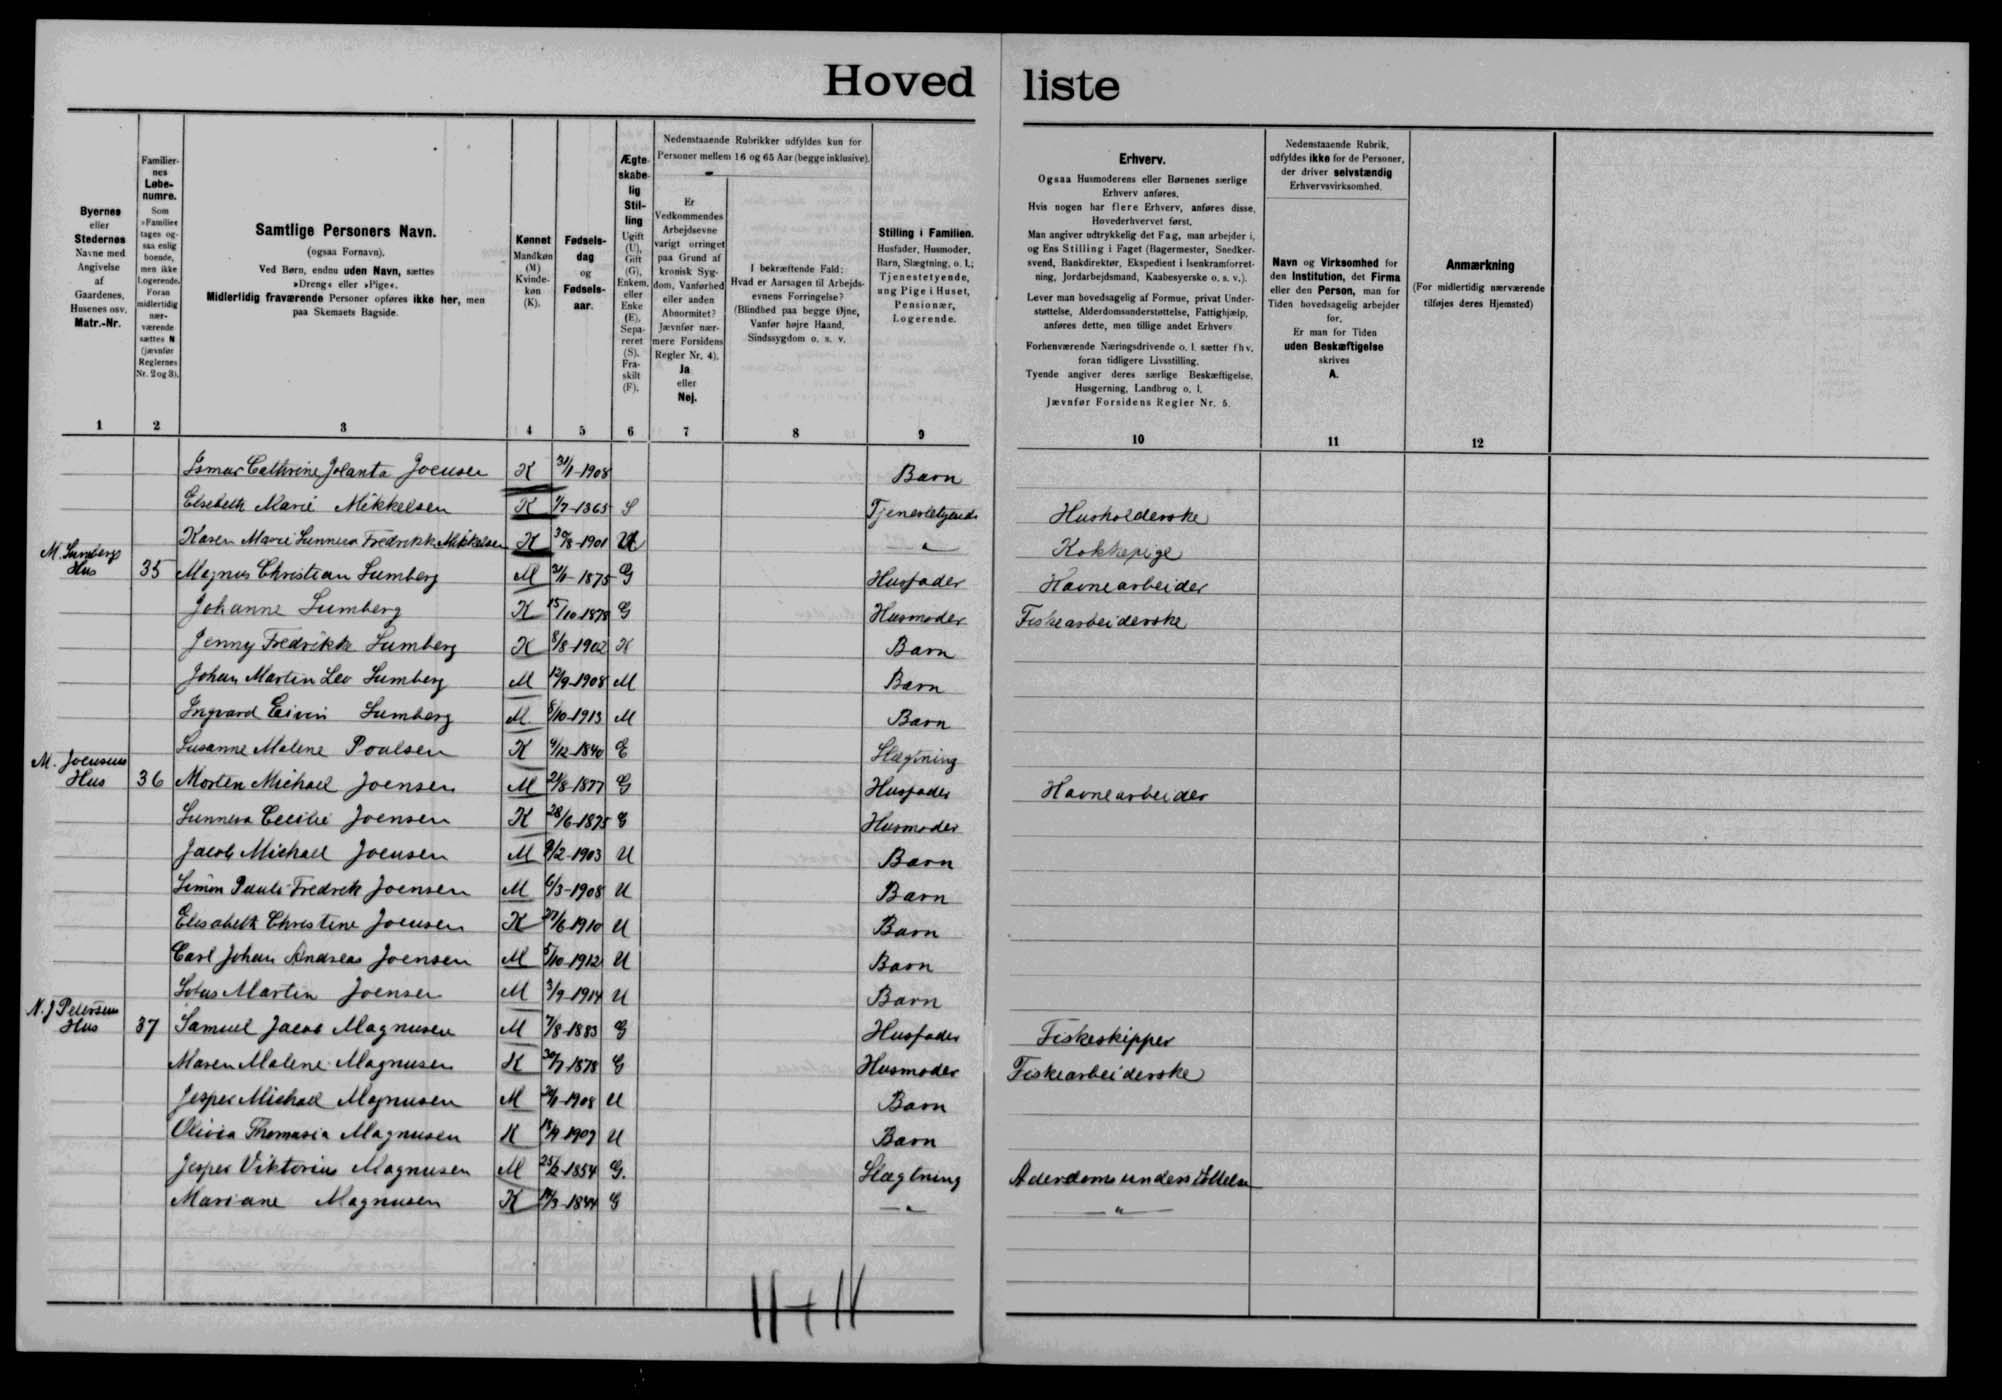 Hoved liste
Byernes
eller
Stedernes
Navne med
Angivelse
af
Gaardenes,
Husenes osv.
Matr.-Nr.
Familier-
nes
Løbe-
numre.
Som
»Familie«
tages og-
saa enlig
boende,
men ikke
Logerende.
Foran
midlertidig
nær-
værende
sættes N
(jævnfør
Reglernes
Nr. 2 og 3).
Samtlige Personers Navn.
(ogsaa Fornavn).
Ved Børn, endnu uden Navn, sættes
»Dreng« eller »Pige«.
Midlertidig fraværende Personer opføres ikke her, men
paa Skemaets Bagside.
Kønnet
Mandkøn
(M)
Kvinde-
køn
(K).
Fødsels-
dag
og
Fødsels-
aar.
Ægte-
skabe-
lig
Stil-
ling
Ugift
(U),
Gift
(G),
Enkem.
eller
Enke
(E),
Sepa-
reret
(S),
Fra-
skilt
(F).
Nedenstaaende Rubrikker udfyldes kun for
Personer mellem 16 og 65 Aar (begge inklusive).
Er
Vedkommendes
Arbejdsevne
varigt orringet
paa Grund af
kronisk Syg-
dom, Vanførhed
eller anden
Abnormitet?
Jævnfør nær-
mere Forsidens
Regler Nr. 4).
Ja
eller
Nej.
I bekræftende Fald:
Hvad er Aarsagen til Arbejds-
evnens Forringelse?
(Blindhed paa begge Øjne,
Vanfør højre Haand,
Sindssygdom o. s. v.
Stilling i Familien.
Husfader, Husmoder,
Barn, Slægtning, o. l.;
Tjenestetyende,
ung Pige i Huset,
Pensionær,
Logerende.
Erhverv.
Ogsaa Husmoderens eller Børnenes særlige
Erhverv anføres.
Hvis nogen har flere Erhverv, anføres disse,
Hovederhvervet først.
Man angiver udtrykkelig det Fag, man arbejder i,
og Ens Stilling i Faget (Bagermester, Snedker-
svend, Bankdirektør, Ekspedient i Isenkramforret-
ning, Jordarbejdsmand, Kaabesyerske o. s. v.).
Lever man hovedsagelig af Formue, privat Under-
støttelse, Alderdomsunderstøttelse, Fattighjælp,
anføres dette, men tillige andet Erhverv.
Forhenværende Næringsdrivende o. l. sætter fhv.
foran tidligere Livsstilling.
Tyende angiver deres særlige Beskæftigelse,
Husgerning, Landbrug o. l.
Jævnfør Forsidens Regler Nr. 5.
Nedenstaaende Rubrik,
udfyldes ikke for de Personer,
der driver selvstændig
Erhvervsvirksomhed.
Navn og Virksomhed for
den Institution, det Firma
eller den Person, man for
Tiden hovedsagelig arbejder
for.
Er man for Tiden
uden Beskæftigelse
skrives
A.
Anmærkning
(For midlertidig nærværende
tilføjes deres Hjemsted)
1 2 3 4 5 6 7 8 9 10 11 12
Ismar Cathrine Jolanta Joensen K 31/1-1908 Barn
Elsebeth Marie Mikkelsen K 1/7-1865 S Tjenestetyende Husholderske
Karen Marie Sunneva Fredrikke Mikkelsen K 30/8-1901 U — " — Kokkepige
M. Lumbergs
Hus 35 Magnus Christian Lumberg M 31/1-1875 G Husfader Havnearbeider
Johanne Lumberg K 15/10-1878 G Husmoder Fiskearbeiderske
Jenny Fredrikke Lumberg K 8/8-1902 K Barn
Johan Martin Leo Lumberg M 12/9-1908 M Barn
Ingvard Eivin Lumberg M 8/10-1913 M Barn
Susanne Malene Poulsen K 4/12-1840 E Slægtning
M. Joensens
Hus 36 Morten Michael Joensen M 21/8-1877 G Husfader Havnearbeider
Sunneva Cecilie Joensen K 28/6-1875 G Husmoder
Jacob Michael Joensen M 9/2-1903 U Barn
Simon Pauli Fredrek Joensen M 6/3-1908 U Barn
Elisabeth Christine Joensen K 27/6-1910 U Barn
Carl Johan Andreas Joensen M 5/10-1912 U Barn
Martin Joensen M 3/9-1914 U Barn
N. J Petersens
Hus 37 Samuel Jacob Magnusen M 7/8-1883 G Husfader Fiskeskipper
Maren Malene Magnusen K 30/7-1878 G Husmoder Fiskearbeiderske
Jesper Michael Magnusen M 1908 U Barn
Olivia Thomasia Magnusen K U Barn
Jesper Viktorius Magnusen M 25/2-1854 G. Slægtning Aderdomsunderstöttelse
Mariane Magnusen K 14/3-1844 G — " — — " —